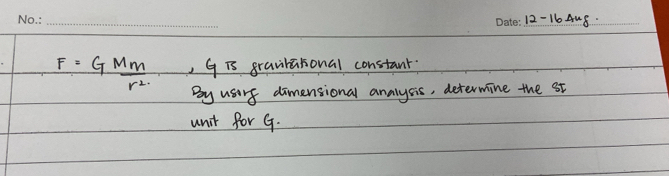 No.:
Date: 12-16 Aug.
F = G Mm / r². , G is gravitational constant.
By using dimensional analysis, determine the SI
unit for G.